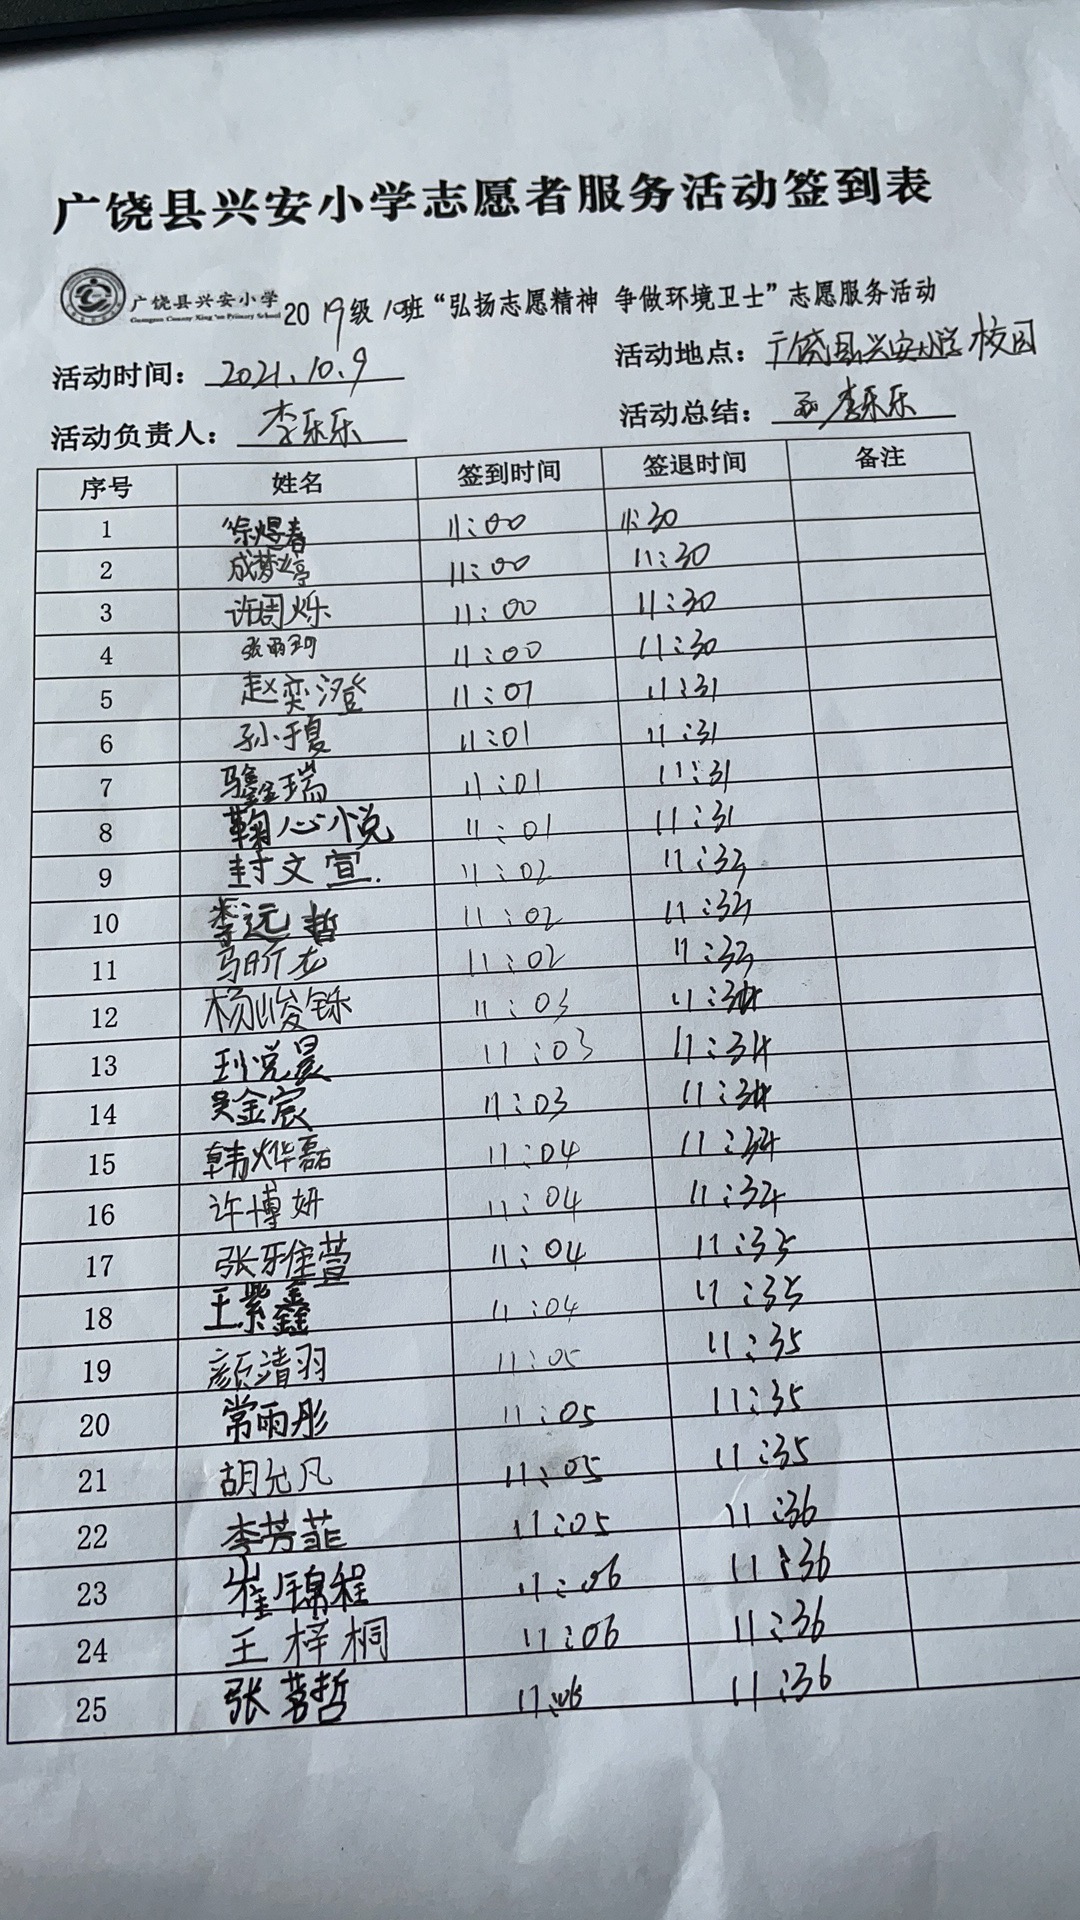 广饶县兴安小学志愿者服务活动签到表
广饶县兴安小学 2019级10班“弘扬志愿精神 争做环境卫士”志愿服务活动
Guangrao County Xing'an Primary School
活动时间：2021.10.9 活动地点：广饶县兴安小学校园
活动负责人：李乐乐 活动总结：李乐乐
序号 姓名 签到时间 签退时间 备注
1 徐煜春 11:00 11:30
2 成梦婷 11:00 11:30
3 许周烁 11:00 11:30
4 张雨珂 11:00 11:30
5 赵奕澄 11:01 11:31
6 孙于夏 11:01 11:31
7 鑫瑞 11:01 11:31
8 鞠心悦 11:01 11:31
9 封文宣 11:02 11:32
10 李远哲 11:02 11:32
11 马昕龙 11:02 11:33
12 杨峻铄 11:03 11:34
13 刘悦晨 11:03 11:34
14 吴金宸 11:03 11:34
15 韩烨磊 11:04 11:34
16 许博妍 11:04 11:34
17 张雅萱 11:04 11:35
18 王紫鑫 11:04 11:35
19 颜清羽 11:05 11:35
20 常雨彤 11:05 11:35
21 胡允凡 11:05 11:35
22 李芳菲 11:05 11:36
23 崔锦程 11:06 11:36
24 王梓桐 11:06 11:36
25 张茗哲 11:06 11:36